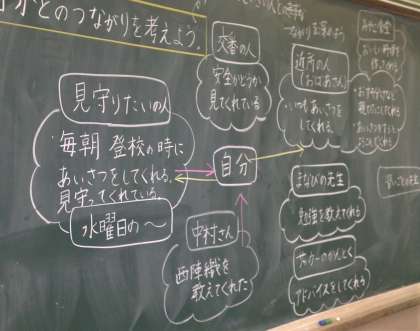 かとのつながりを考えよう。
つながりを
見守りたいの人
毎朝 登校の時に
あいさつをしてくれる。
見守ってくれている。
水曜日の〜
交番の人
安全かどうか
見てくれている
自分
中村さん
西陣織を
教えてくれた
近所の人
(おばあさん)
いつもあいさつを
してくれる。
まなびの先生
勉強を教えてくれる
サッカーのかんとく
アドバイスをしてくれる
おいしい料理を
作ってくれる